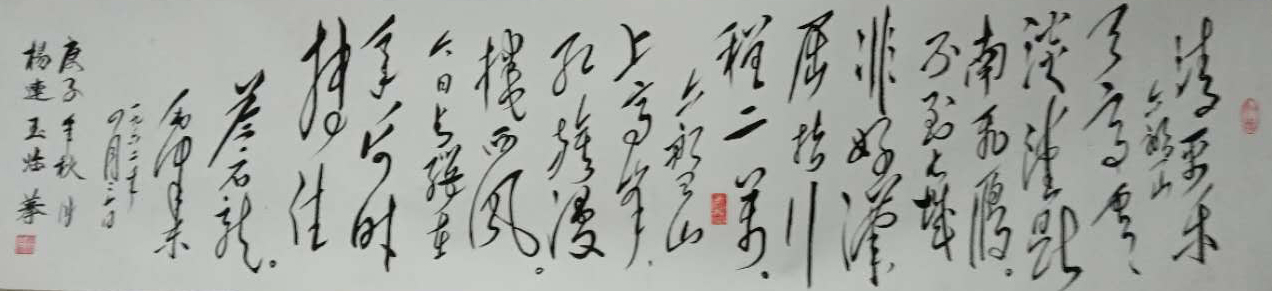 清平乐
六盘山
天高云
淡望断
南飞雁。
不到长城
非好汉
屈指行
程二万。
六盘山
上高峰
红旗漫
捲西风。
今日长缨在
手何时
缚住
苍龙。
毛泽东
庚子年秋月
杨連玉临摹